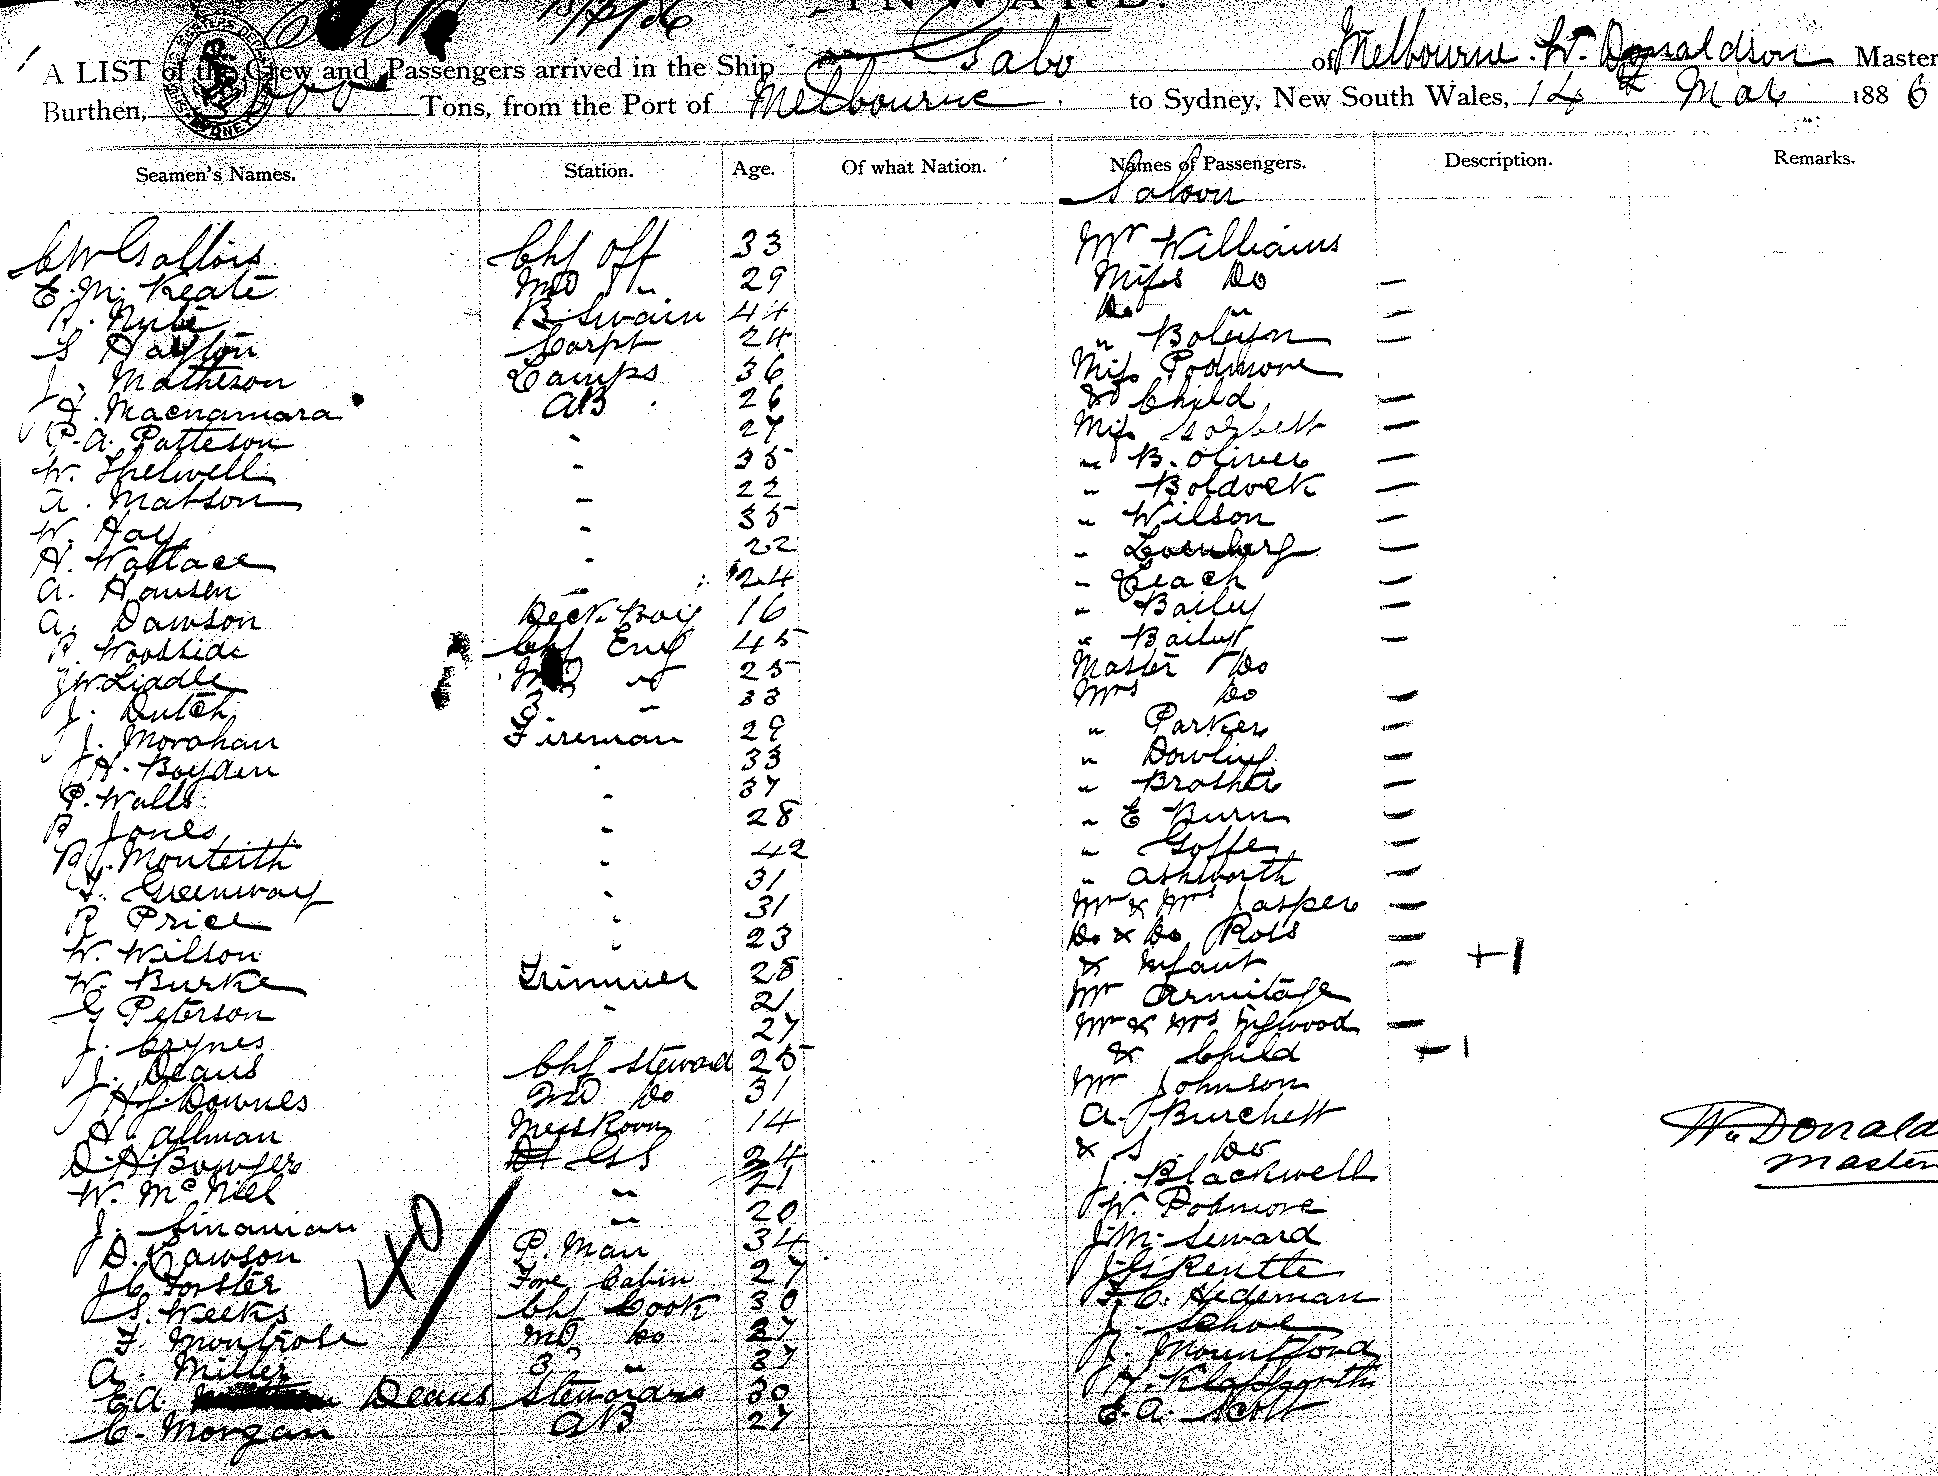 INWARD.
A LIST of the Crew and Passengers arrived in the Ship Gabo of Melbourne. W. Donaldson Master
Burthen, Tons, from the Port of Melbourne to Sydney, New South Wales, 14th Mar 1886
Seamen's Names. Station. Age. Of what Nation. Names of Passengers. Description. Remarks.
Saloon
C W Gallois Chf Off 33 Mr Williams
E. M. Keate 2nd " 29 Miss Do —
R. B. Swain 44 Do " —
S Carpt 24 " Boleyn —
J. Matheson Lamps 36 Miss Podmore
Macnamara AB 26 & Child —
P. A. Patteson " 27 Miss Corbett —
W. Thelwell " 35 " B. Oliver —
A. Matson " 22 " Boldock —
W. Hay " 35 " Wilson —
H. Wallace " 22 " —
A. Hansen " 24 " Leach —
A. Dawson Deck Boy 16 " Bailey —
R. Woodside Chf Eng 45 " Bailey —
J W Liddle 2nd " 25 Master Do
J. Dutch 3 " 33 Mrs Do —
J. Morohan Fireman 29 " Parker —
H. Boyden " 33 " Dowling —
P. Walls " 37 " Brother —
R Jones " 28 " E Burn —
R J. Monteith " 42 " Goffe —
T. Greenway " 31 " Ashworth —
R Price " 31 Mr & Mrs Jasper —
W. Wilson " 23 Do & Do Ross —
W. Burke Trimmer 28 & Infant — +1
G Peterson " 21 Mr Armitage
J. Crynes " 27 Mr & Mrs —
J. Deans Chf Steward 25 & Child +1
H J. Downes 2nd Do 31 Mr Johnson
A. Allman Messroom 14 A. Burchett
D. H. 24 & S. Do
W. McNiel " 21 J. Blackwell
J. " 20 W. Podmore
D. Lawson P. Man 34 J. M. Seward
J C Forster Fore Cabin 27 J.
S. Weeks Chf Cook 30 F. C. Hedeman
F. Montrose 2nd Do 27 J.
A. Miller 3 " 37 Mountford
E A. Deans Stewardess 30 H. Klapproth
C. Morgan AB 27 E. A. Scott
Wm Donald
Master